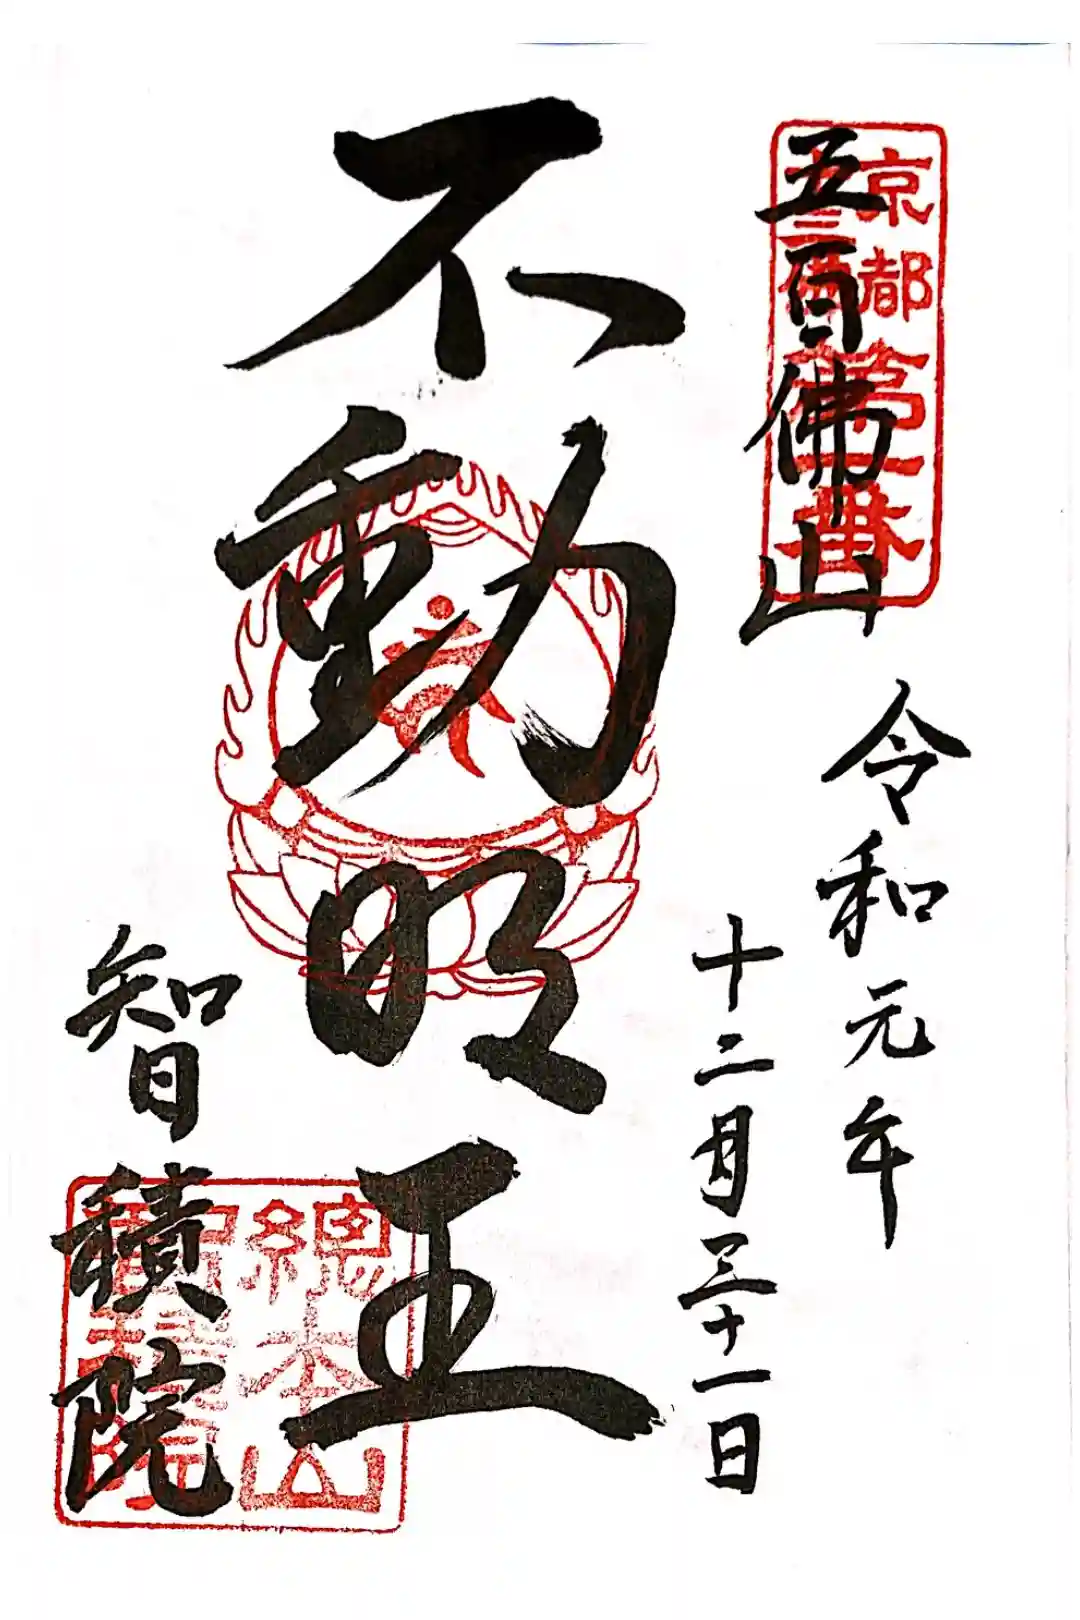 京都
十三佛
第一番
五百佛山
令和元年
十二月三十一日
不動明王
總本山
智積院
智積院